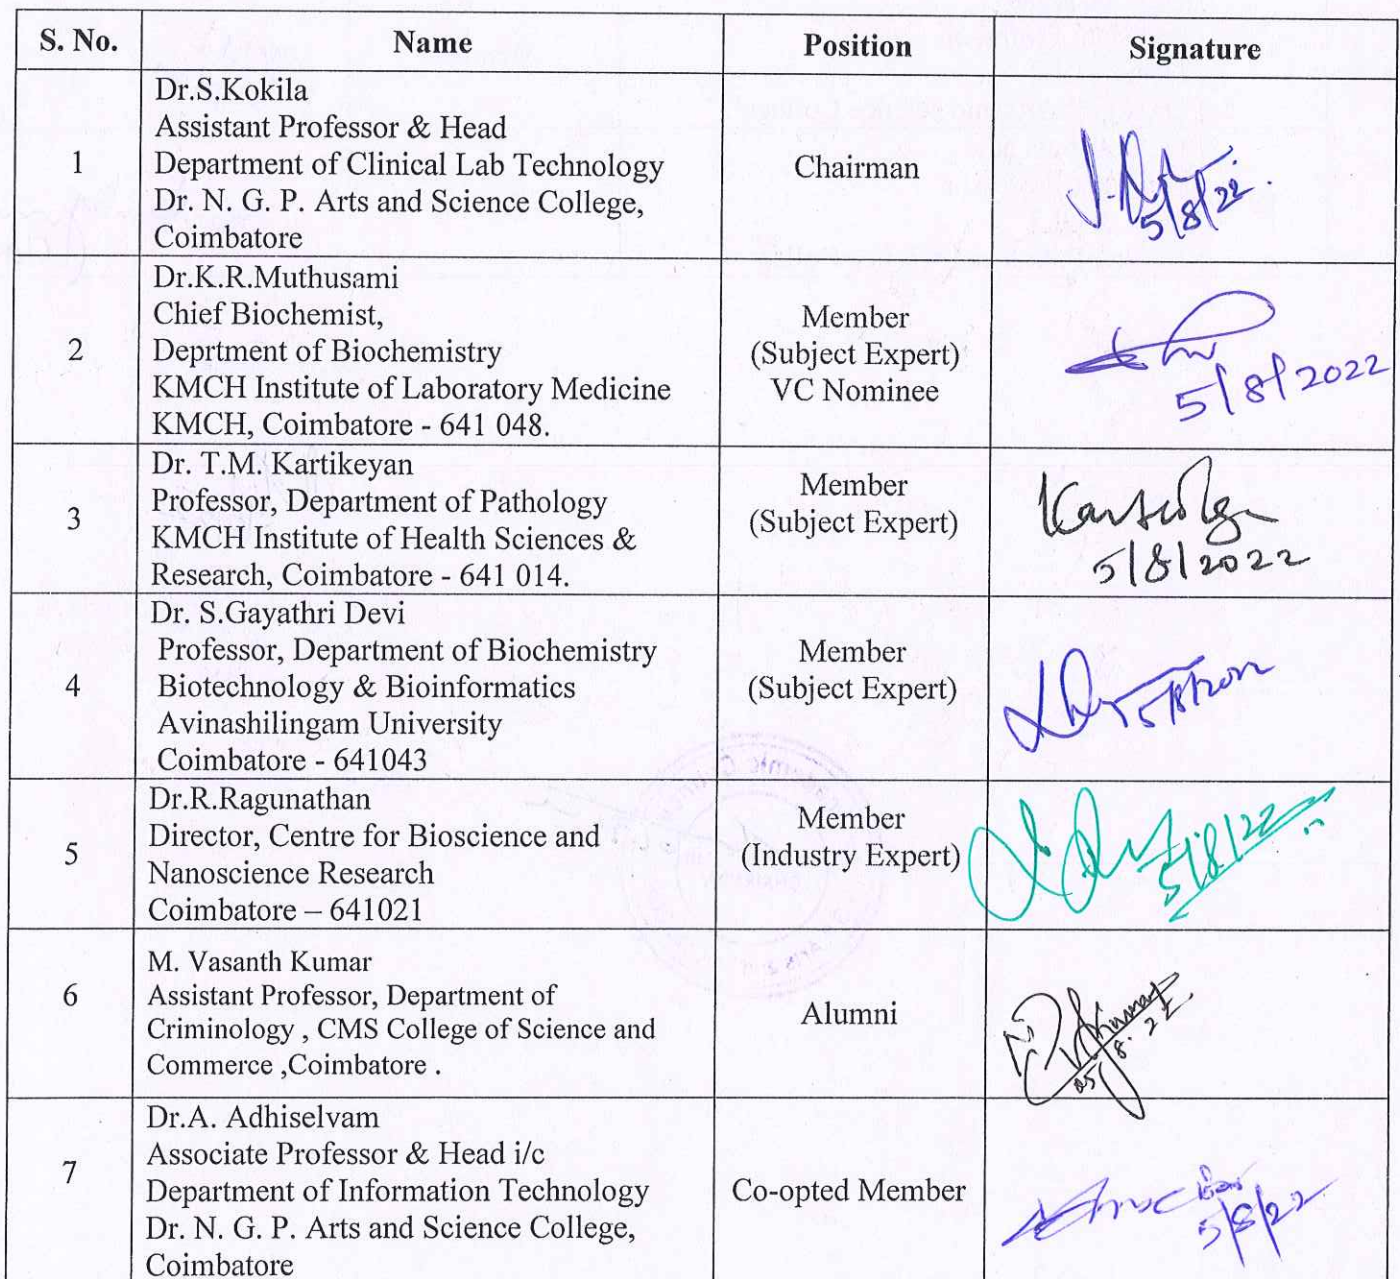 S. No. Name Position Signature
1
Dr.S.Kokila
Assistant Professor & Head
Department of Clinical Lab Technology
Dr. N. G. P. Arts and Science College,
Coimbatore
Chairman
5/8/22.
2
Dr.K.R.Muthusami
Chief Biochemist,
Deprtment of Biochemistry
KMCH Institute of Laboratory Medicine
KMCH, Coimbatore - 641 048.
Member
(Subject Expert)
VC Nominee
5/8/2022
3
Dr. T.M. Kartikeyan
Professor, Department of Pathology
KMCH Institute of Health Sciences &
Research, Coimbatore - 641 014.
Member
(Subject Expert)
5/8/2022
4
Dr. S.Gayathri Devi
Professor, Department of Biochemistry
Biotechnology & Bioinformatics
Avinashilingam University
Coimbatore - 641043
Member
(Subject Expert)
5/8/2022
5
Dr.R.Ragunathan
Director, Centre for Bioscience and
Nanoscience Research
Coimbatore – 641021
Member
(Industry Expert)
5/8/22
6
M. Vasanth Kumar
Assistant Professor, Department of
Criminology , CMS College of Science and
Commerce ,Coimbatore .
Alumni
05/8.22
7
Dr.A. Adhiselvam
Associate Professor & Head i/c
Department of Information Technology
Dr. N. G. P. Arts and Science College,
Coimbatore
Co-opted Member
5/8/22